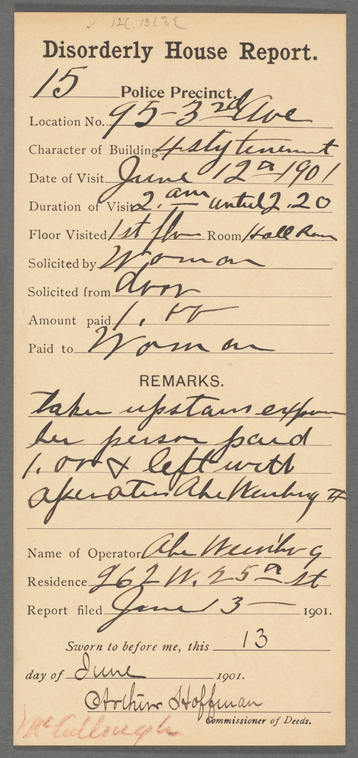 Disorderly House Report.
15 Police Precinct.
Location No. 95-3rd Ave
Character of Building 4 sty tenement
Date of Visit June 12th 1901
Duration of Visit 2. am until 2.20
Floor Visited 1st flr Room Hall Room
Solicited by Woman
Solicited from door
Amount paid 1.00
Paid to Woman
REMARKS.
taken upstairs expose
her person paid
1.00 & left with
operator Abe Weinberg
Name of Operator Abe Weinberg
Residence 262 W. 25th St
Report filed June 13 — 1901.
Sworn to before me, this 13
day of June 1901.
Arthur Hoffman
Commissioner of Deeds.
McCullough